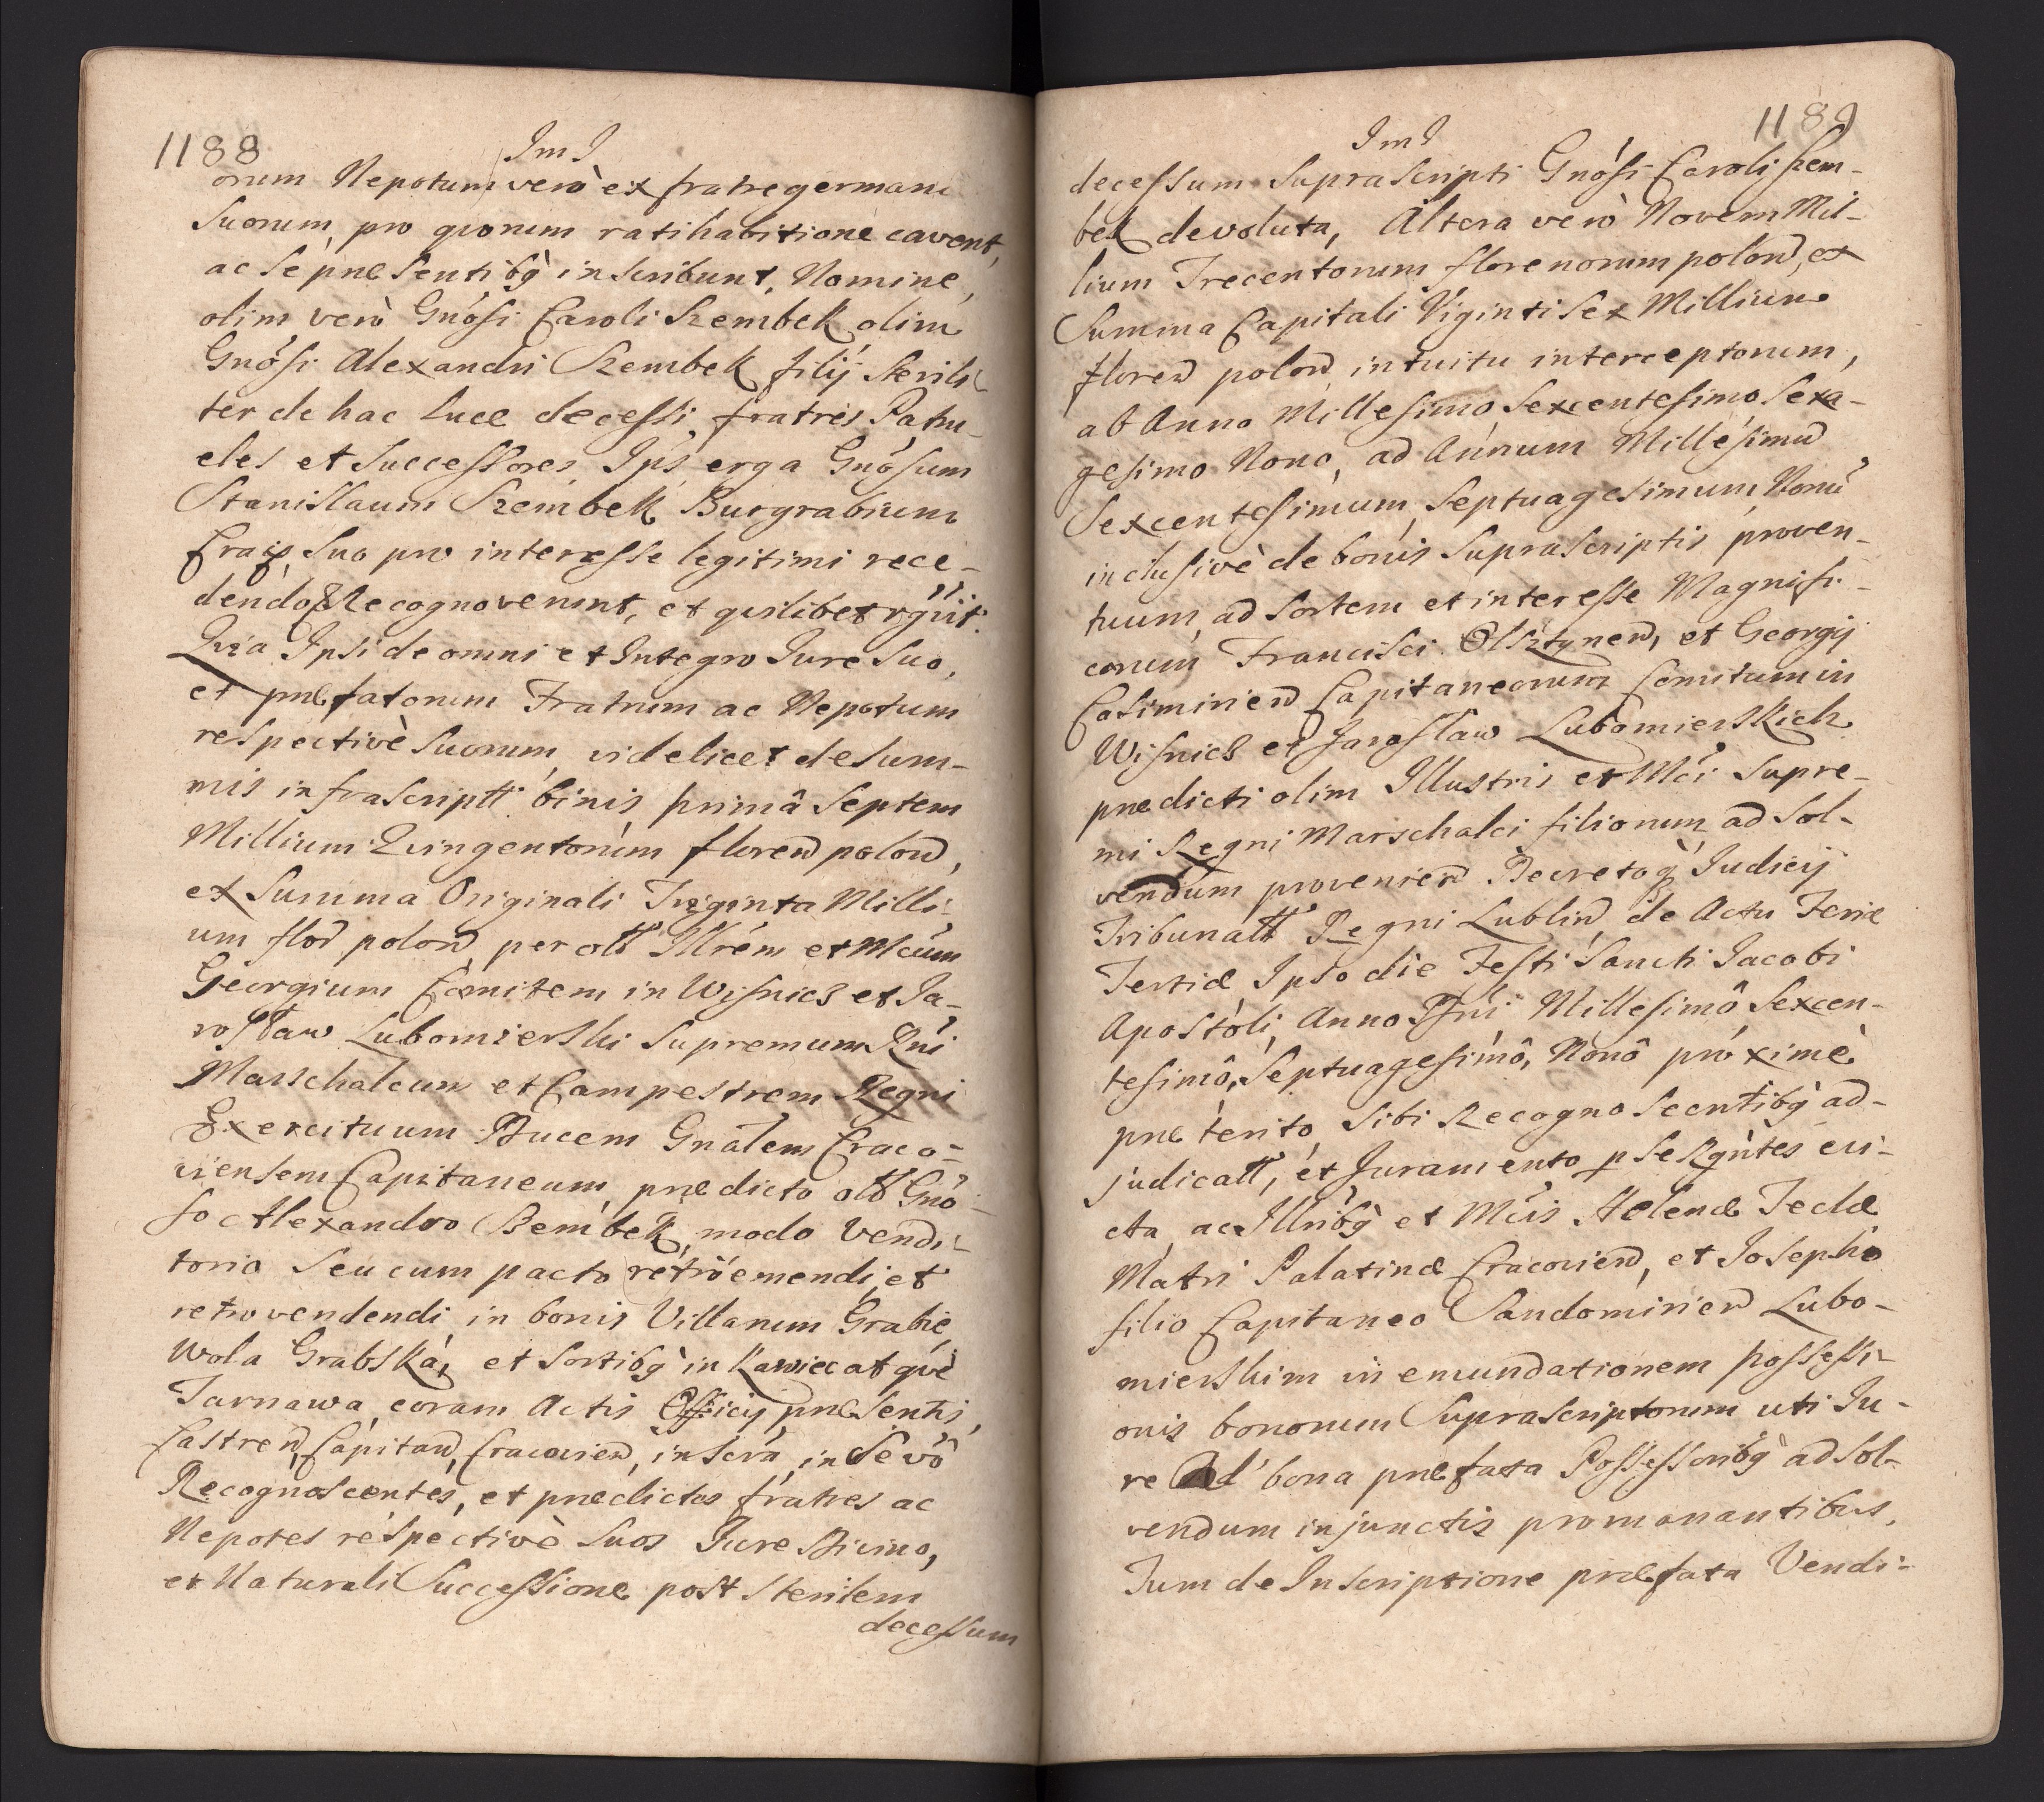 1188
ImI
orum Nepotum verò ex fratre germano
Suorum, pro quorum ratihabitione cavent,
ac Se præsentibq̀ inscribunt, Nomine,
olim verò Gnósi Caroli Szembek olim
Gnósi Alexandri Szembek filÿ Sterili-
ter de hac luce decessi, fratres Patru-
eles et Successores, Ips erga Gnósum
Stanislaum Szembek Burgrabium
Crac, Suo pro interesse legitimi rece-
dendo, Recognoverunt, et quilibet rgũit.
Quia Ipsi de omni et Integro Jure Suo,
et præfatorum Fratrum ac Nepotum
respectivè Suorum, videlicet de Sum-
mis infrascriptt binis, primâ Septem
Millium Quingentorum floren polon,
ex Summa Originali Triginta Milli-
um flor polon, per olt Illrém et Mcúm
Georgium Comitem in Wisnicz et Ja-
rosław Lubomierski Supremum Rñi
Marschalcum et Campestrem Regni
Exercituum Ducem Gnálem Craco-
viensem Capitaneum, prædicto olt Gnó-
so Alexandro Szembek, modo Vendi-
torio Seu cum pacto retròemendi, et
retrovendendi in bonis Villarum Grabie,
Wola Grabská, et Sortibq̀ in Kawiec atquè
Tarnawa, coram Actis Officÿ præsentis,
Castren, Capitan, Cracovien, inscra, in Se vò
Recognoscentes, et prædictos fratres ac
Nepotes réspectivè Suos Jure Divino,
et Naturali Successione post Sterilem
decessum
1189
ImI
decessum Suprascripti Gnósi Caroli Szem-
bek devoluta, Altera verò Novem Mil-
lium Trecentorum florenorum polon, ex
Summa Capitali Viginti Sex Millium
floren polon, intuitu interceptorum,
ab Anno Millesimo Sexcentesimo Sexa-
gesimo Nono, ad Annum Millésimũ
Sexcentesimum, Septuagesimum, Nonũ
inclusivè de bonis Suprascriptis proven-
tuum, ad Sortem et interesse Magnifi-
corum Francisci Olsztynen, et Georgÿ
Casimirien Capitaneorum Comitum in
Wisnicz et Jarosław Lubomierskich
prædicti olim Illustris et Mcí Supre-
mi Regni Marschalci filiorum ad Sol-
vendum provenien Decretoq̀ Judicÿ
Tribunatt Regni Lublin, de Actu Feriæ
Tertiæ Ipso die Festi Sancti Jacobi
Apostoli, Anno Dñi Millesimô Sexcen-
tesimô, Septuagesimô, Nonô proximè
præterito, Sibi Recognoscentibq̀ ad-
judicatt, et Juramento p Se Rgñtes evi-
cta, ac Illribq̀ et Mcis Helenæ Teclæ
Matri Palatinæ Cracovien, et Josepho
filio Capitaneo Sandomirien Lubo-
mierskim in emundationem possessi-
onis bonorum Suprascriptorum uti Ju-
re Ad bona præfata Possessoribq̀ ad Sol-
vendum injunctis promanantibus.
Tum de Inscriptione præfata Vendi-